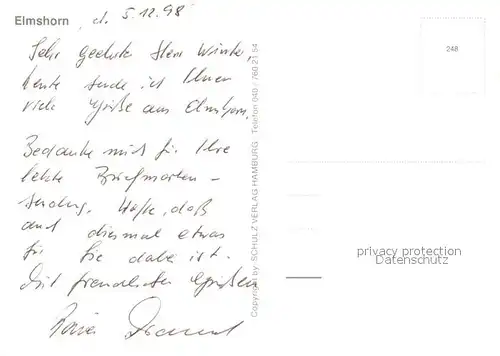 Elmshorn, d. 5.12.98
Sehr geehrter Herr Winter,
heute sende ich Ihnen
viele Grüße aus Elmshorn.
Bedanke mich für Ihre
letzte Briefmarken-
sendung. Hoffe, daß
auch diesmal etwas
für Sie dabei ist.
Mit freundlichen Grüßen
Copyright by SCHULZ VERLAG HAMBURG Telefon 040 / 760 21 54
248
privacy protection
Datenschutz